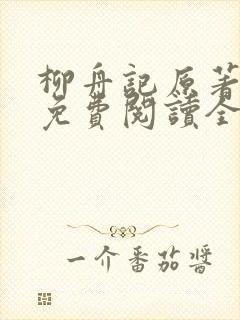 柳舟記原著
免費閱讀全
一介番茄醬